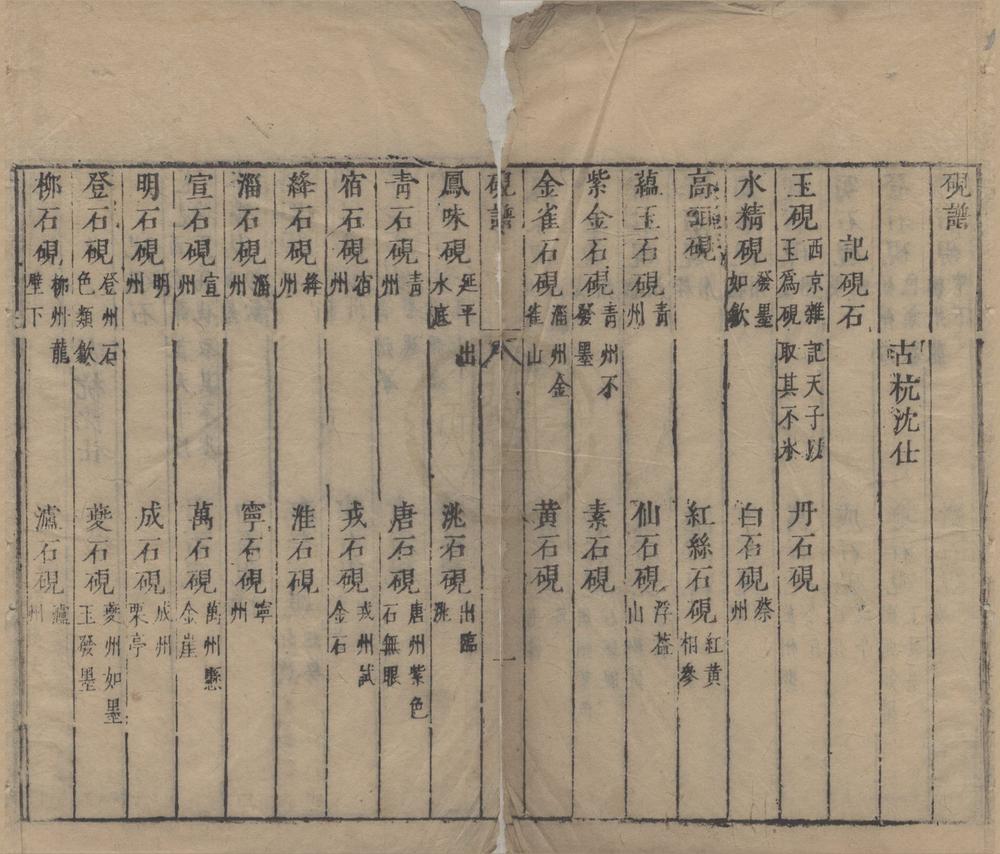 硯譜
古杭沈仕
記硯石
玉硯 西京雜記天子以玉爲硯取其不氷 丹石硯
水精硯 發墨如歙 白石硯 蔡州
高 硯 紅絲石硯 紅黃相參
蘊玉石硯 青州 仙石硯 浮蓋山
紫金石硯 青州不發墨 素石硯
金雀石硯 淄州金雀山 黃石硯
硯譜 八 一
鳳味硯 延平出水底 洮石硯 出臨洮
青石硯 青州 唐石硯 唐州紫色石無眼
宿石硯 宿州 戎石硯 戎州試金石
絳石硯 絳州 淮石硯
淄石硯 淄州 寧石硯 寧州
宣石硯 宣州 萬石硯 萬州懸金崖
明石硯 明州 成石硯 成州栗亭
登石硯 登州石色類歙 夔石硯 夔州如墨玉發墨
柳石硯 柳州龍壁下 瀘石硯 瀘州